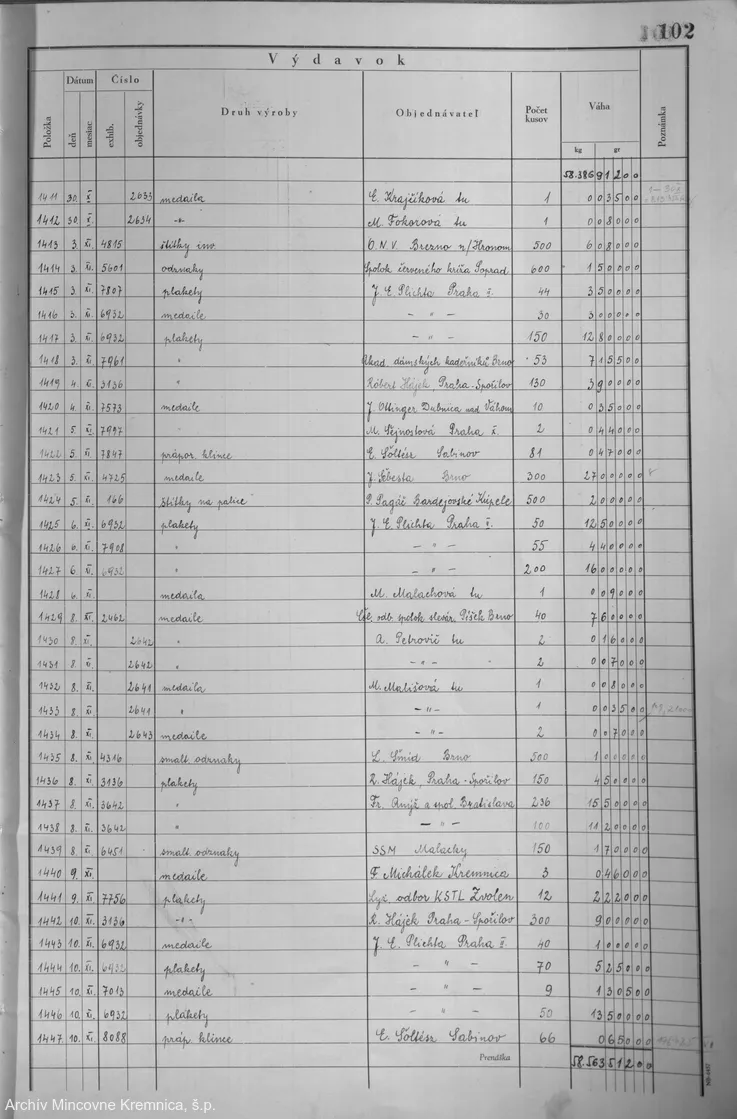 102
Výdavok
Položka Dátum deň mesiac Číslo exhib. objednávky Druh výroby Objednávateľ Počet kusov Váha kg gr Poznámka
58.386 91200
1411 30. X. 2633 medaila E. Krajčíková tu 1 003500
1412 30. X. 2634 -"- M. Fokorová tu 1 008000
1413 3. XI. 4815 štítky inv. O.N.V. Brezno n/Hronom 500 608000
1414 3. XI. 5601 odznaky Spolok červeného kríža Poprad 600 150000
1415 3. XI. 7807 plakety J. E. Plichta Praha I. 44 350000
1416 3. XI. 6932 medaile - " - 30 300000
1417 3. XI. 6932 plakety - " - 150 1280000
1418 3. XI. 7961 " Akad. dámských kaderníků Brno 53 715500
1419 4. XI. 3136 " Róbert Hájek Praha-Spořilov 130 390000
1420 4. XI. 7573 medaile J. Ottinger Dubnica nad Váhom 10 035000
1421 5. XI. 7997 " M. Šejnostová Praha X. 2 044000
1422 5. XI. 7847 prápor. klince E. Šöltész Sabinov 81 047000
1423 5. XI. 4725 medaile J. Šebesta Brno 300 2700000
1424 5. XI. 166 štítky na palice P. Pagáč Bardejovské Kúpele 500 200000
1425 6. XI. 6932 plakety J. E. Plichta Praha I. 50 1250000
1426 6. XI. 7908 " - " - 55 440000
1427 6. XI. 6932 " - " - 200 1600000
1428 6. XI. medaila M. Malachová tu 1 009000
1429 8. XI. 2462 medaile Čsl. odb. spolok slevár. Píšek Brno 40 760000
1430 8. XI. 2642 " A. Petrovič tu 2 016000
1431 8. XI. 2642 " - " - 2 007000
1432 8. XI. 2641 medaila M. Mališová tu 1 008000
1433 8. XI. 2641 " - " - 1 003500
1434 8. XI. 2643 medaile - " - 2 007000
1435 8. XI. 4316 smalt. odznaky L. Šmíd Brno 500 100000
1436 8. XI. 3136 plakety R. Hájek Praha-Spořilov 150 450000
1437 8. XI. 3642 " Fr. a spol. Bratislava 236 1550000
1438 8. XI. 3642 " - " - 100 1120000
1439 8. XI. 6451 smalt. odznaky SSM Malacky 150 170000
1440 9. XI. medaile F. Michálek Kremnica 3 046000
1441 9. XI. 7756 plakety Lyž. odbor KSTL Zvolen 12 222000
1442 10. XI. 3136 -"- R. Hájek Praha-Spořilov 300 900000
1443 10. XI. 6932 medaile J. E. Plichta Praha I. 40 100000
1444 10. XI. 6932 plakety - " - 70 525000
1445 10. XI. 7013 medaile - " - 9 130500
1446 10. XI. 6932 plakety - " - 50 1350000
1447 10. XI. 8088 práp. klince E. Šöltész Sabinov 66 065000
Prenáška 58.563 51200
Archív Mincovne Kremnica, š.p.